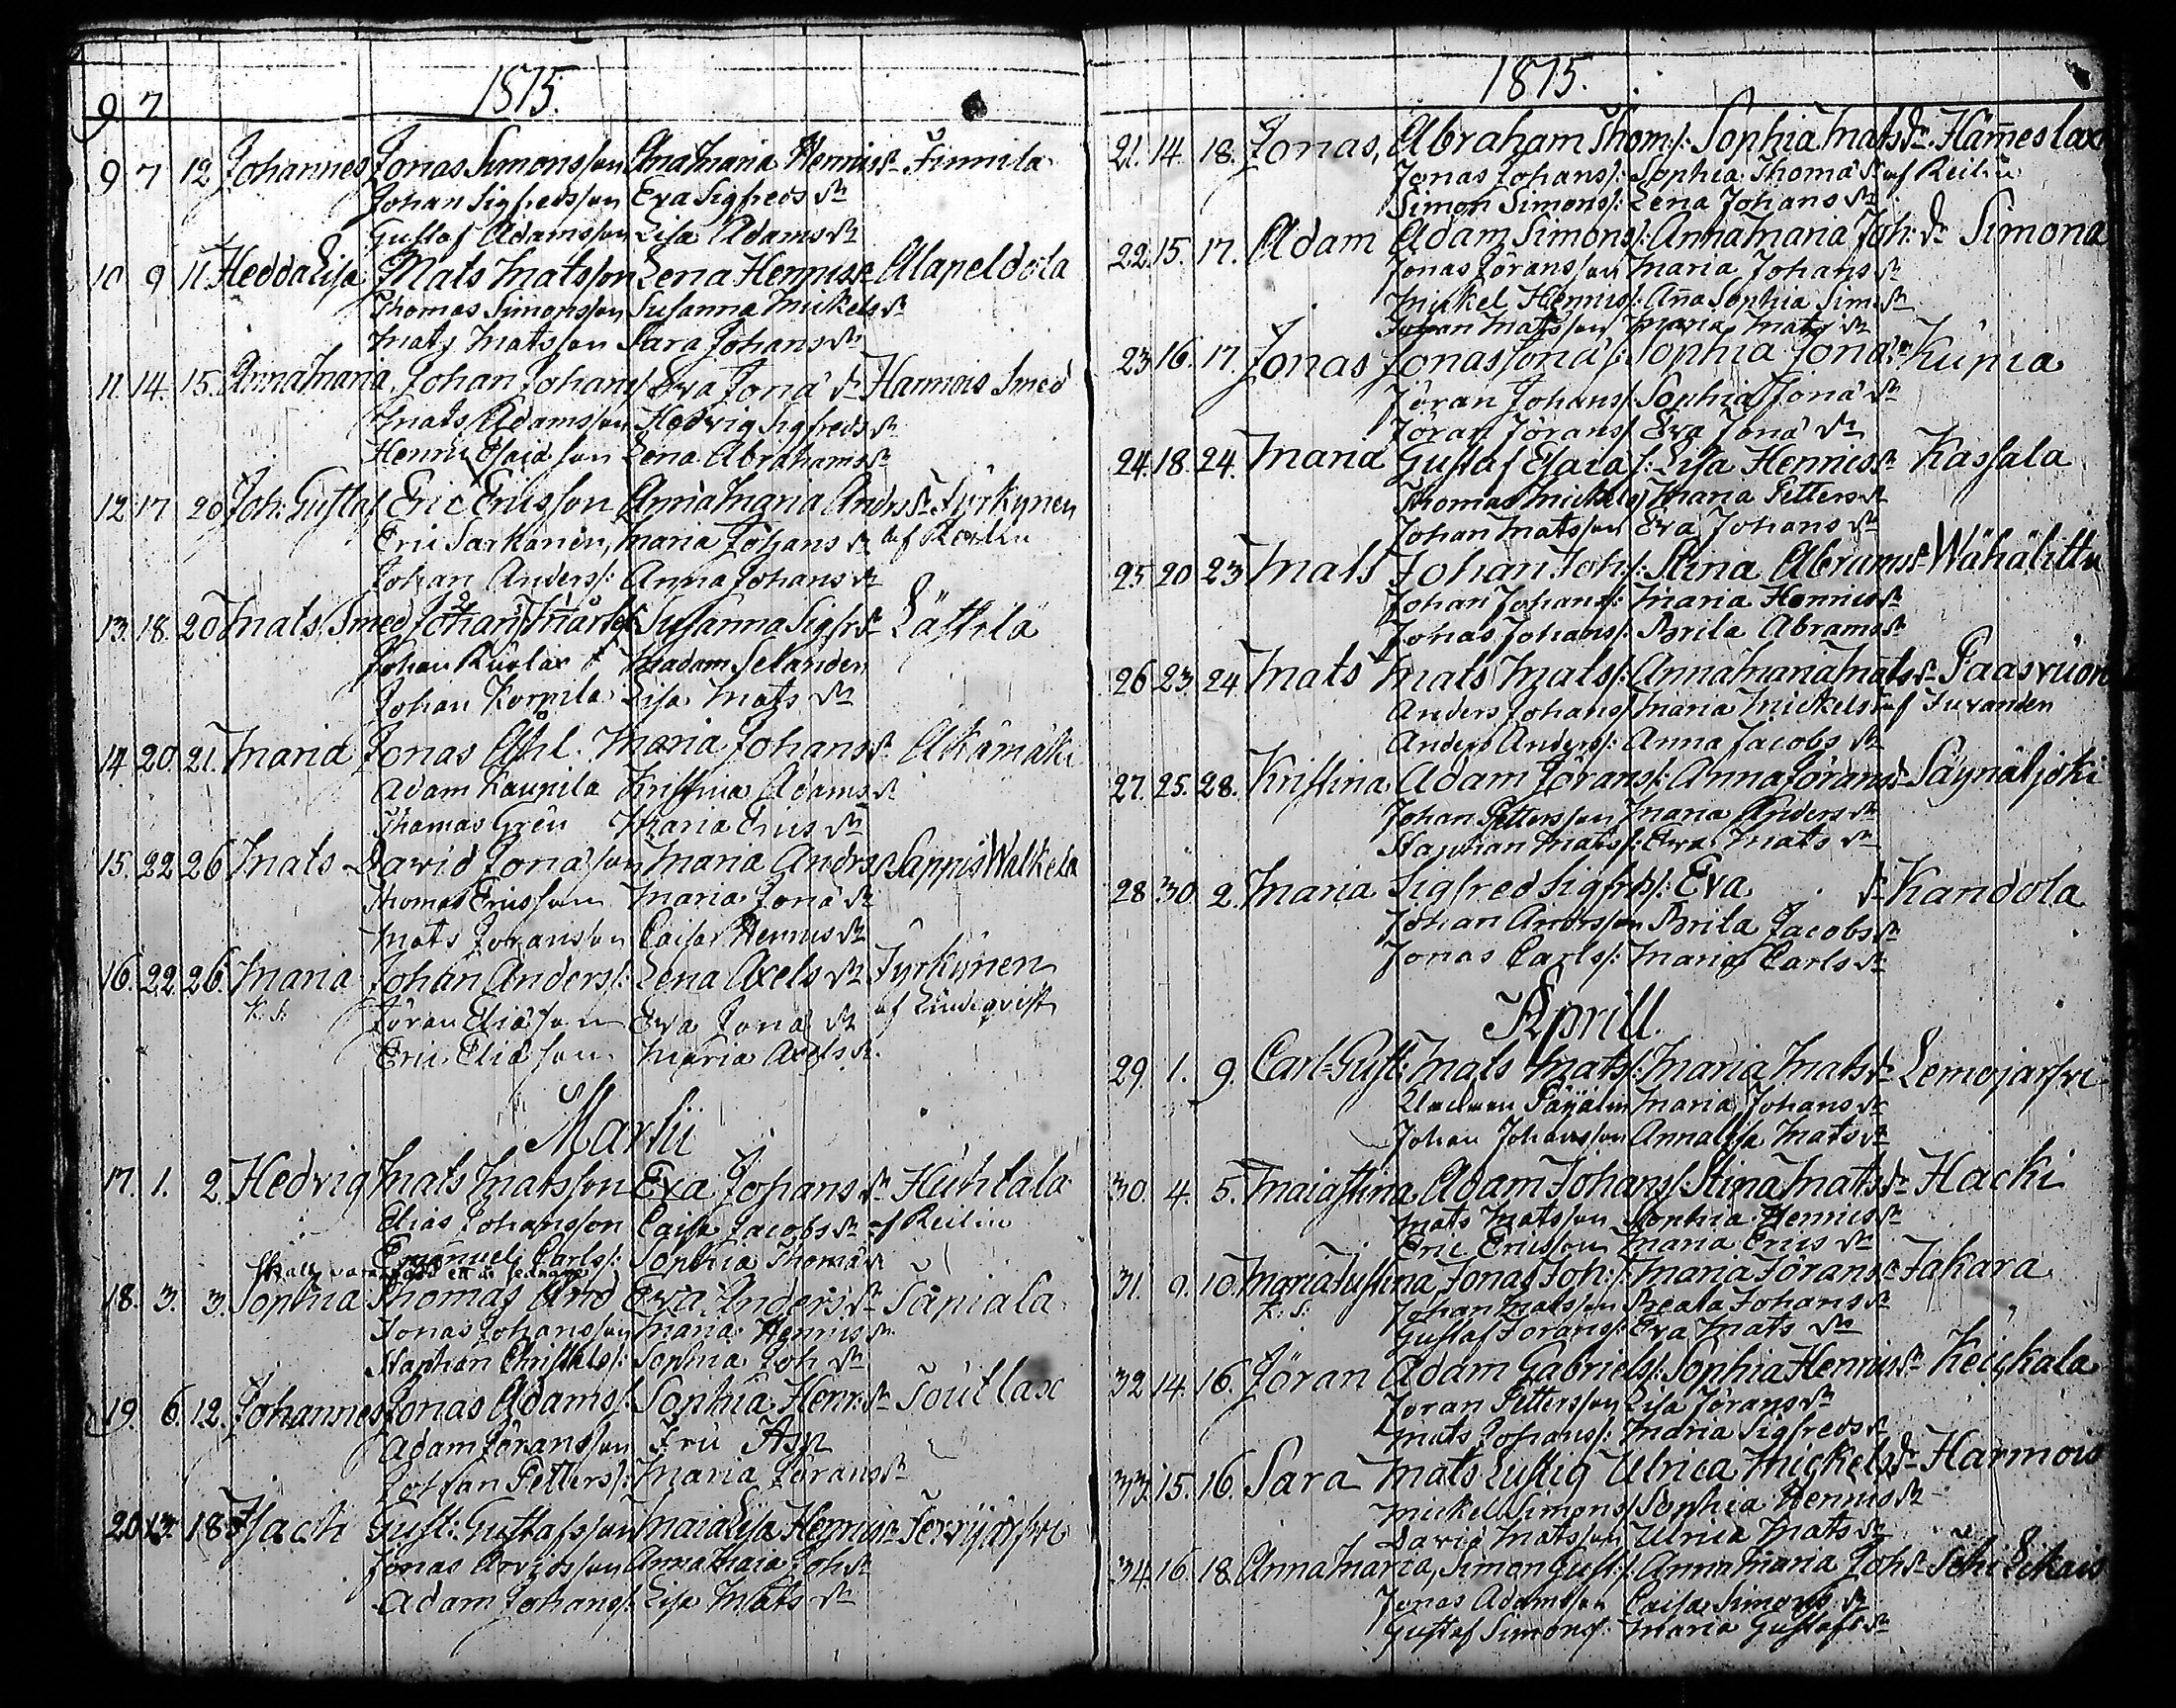 1815.
9 7
9 7 12 Johannes Jonas Simonsson Anna Maria Hennis dr Finnila
Johan Sigfredsson Eva Sigfreds dr
Gustaf Adamsson Lisa Adams dr
10 9 11 Hedda Lisa Mats Matsson Lena Hennis dr Alapeldola
Thomas Simonsson Susanna Mickels dr
Mats Matsson Sara Johans dr
11. 14. 15. Anna Maria Johan Johans Eva Jona dr Hannois Smed
Mats Adamsson Hedvig Sigfreds dr
Henric Esaiasson Lena Abrahams dr
12 17 20 Joh: Gustaf Eric Ericsson Anna Maria Anders dr Tyrkynen
Eric Sarkanen, Maria Johans dr af Reilin
Johan Anders/: Anna Johans dr
13. 18. 20 Mats Smed Johan Susanna Sigfr dr Lästilä
Johan Madam Selanden
Johan Korpila Lisa Mats dr
14 20 21. Maria Jonas Ahl. Maria Johans dr Akämäki
Adam Kaupila Kristina Adams dr
Thomas Gren Maria Erics dr
15. 22 26 Mats David Jonasson Maria Andrs dr Sappis Walkela
Thomas Ericsson Maria Jona dr
Mats Joransson Caisa Hennis dr
16. 22 26. Maria Johan Anders/: Lena Axels dr Tyrkynen
K. S. Jöran Eliasson Eva Jona dr af Lindeqvist
Eric Eliasson Maria Axels dr.
Martii
17. 1. 2. Hedvig Mats Matsson Eva Johans dr Huhtala
Elias Johansson Caisa Jacobs dr af Reilin
Emanuel Carls/: Sophia Thoma dr
18. 3. 3. Sophia Thomas And Eva Anders dr Säpiala
Jonas Johansson Maria Hennis dr
Staphan Christels/: Sophia Joh dr
19. 6. 12. Johannes Jonas Adams/: Sophia Henr: dr Soutlax
Adam Jöransson Fru Asp
Johan Petters/: Maria Jörans dr
20 13. 18 Jacob Gust: Gustafsson Maia Lisa Hennis dr Terrijärfvi
Jonas Arvidsson Anna Maia Joh dr
Adam Johans/: Lisa Mats dr
1815.
21. 14. 18. Jonas, Abraham Thom/: Sophia Mats dr Hämeslax
Jonas Johans/: Sophia Thoma dr af Reilin
Simon Simons/: Lena Johans dr
22. 15. 17. Adam Adam Simons/: Anna Maria Joh: dr Simona
Jonas Jöransson Maria Johans dr
Mickel Hennis/: Anna Sophia Sim dr
Johan Matsson Maria Mats dr
23 16. 17. Jonas Jonas Jona/: Sophia Jona dr Kupia
Jöran Johans/: Sophia Jona dr
Jöran Jörans/ Eva Jona dr
24. 18. 24. Maria Gustaf Esaia/: Lisa Hennis dr Kassala
Thomas Mickels/ Maria Petters dr
Johan Matsson Eva Johans dr
25 20 23 Mats Johan Joh/: Stina Abrams dr Wähälittu
Johan Johans/: Maria Hennis dr
Jonas Johans/: Brita Abrams dr
26 23. 24 Mats Mats Mats/: Anna Maria Mats dr Paasvuori
Anders Johans/ Maria Mickels dr af Juvanden
Anders Anders/: Anna Jacobs dr
27. 25. 28. Kristina Adam Jörans/: Anna Jörans dr Säynäljoki
Johan Pettersson Maria Anders dr
Staphan Mats/: Eva Mats dr
28 30. 2. Maria Sigfred Sigfrs/: Eva dr Kandola
Johan Andersson Brita Jacobs dr
Jonas Carls/: Maria Carls dr
Aprill.
29. 1. 9. Carl Gust: Mats Mats/: Maria Mats dr Lemojärfvi
Päyälin Maria Johans dr
Johan Johansson Anna Lisa Mats dr
30. 4. 5. Maia Stina Adam Johans/: Stina Mats dr Hacki
Mats Matsson Sophia Hennis dr
Eric Ericsson Maria Erics dr
31. 9. 10. Maria Justina Jonas Joh:/: Maria Jörans dr Jakara
K. S. Johan Matsson Beata Johans dr
Gustaf Jorans/: Eva Mats dr
32 14. 16. Jöran Adam Gabriels/: Sophia Hennis dr Keickala
Joran Pettersson Lisa Jörans dr
Mats Johans/: Maria Sigfreds dr
33. 15. 16. Sara Mats Lustig Ulrica Mickels dr Harmois
Mickel Simons/ Sophia Hennis dr
David Matsson Ulrica Mats dr
34. 16. 18. Anna Maria, Simon Gust/: Anna Maria Joh dr
Jonas Adamsson Caisa Simons dr
Gustaf Simons/: Maria Gustafs dr